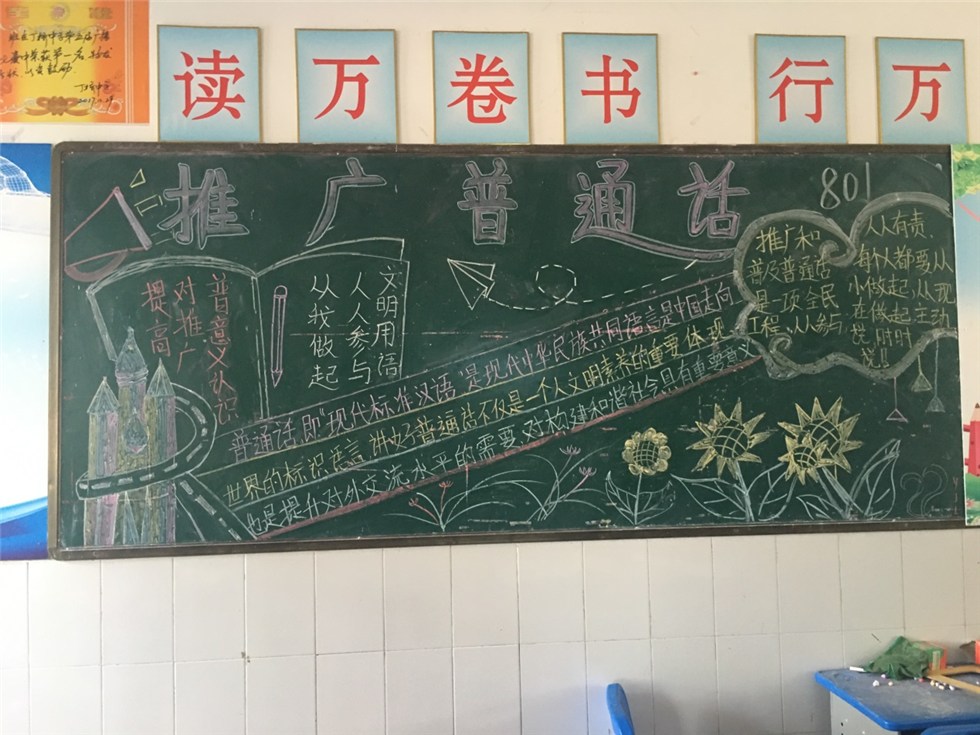 读万卷书 行万
推广普通话
801
普意义认识
对推广
提高
文明用语
人人参与
从我做起
普通话,即"现代标准汉语",是现代中华民族共同语言是中国走向
世界的标识语言,讲好普通话不仅是一个人文明素养的重要体现,
也是提升对外交流水平的需要,对构建和谐社会具有重要意义
推广和
普及普通话
是一项全民
工程,从人参与
人人有责.
每个人都要从
小做起,从现
在做起主动
说,时时
说!!